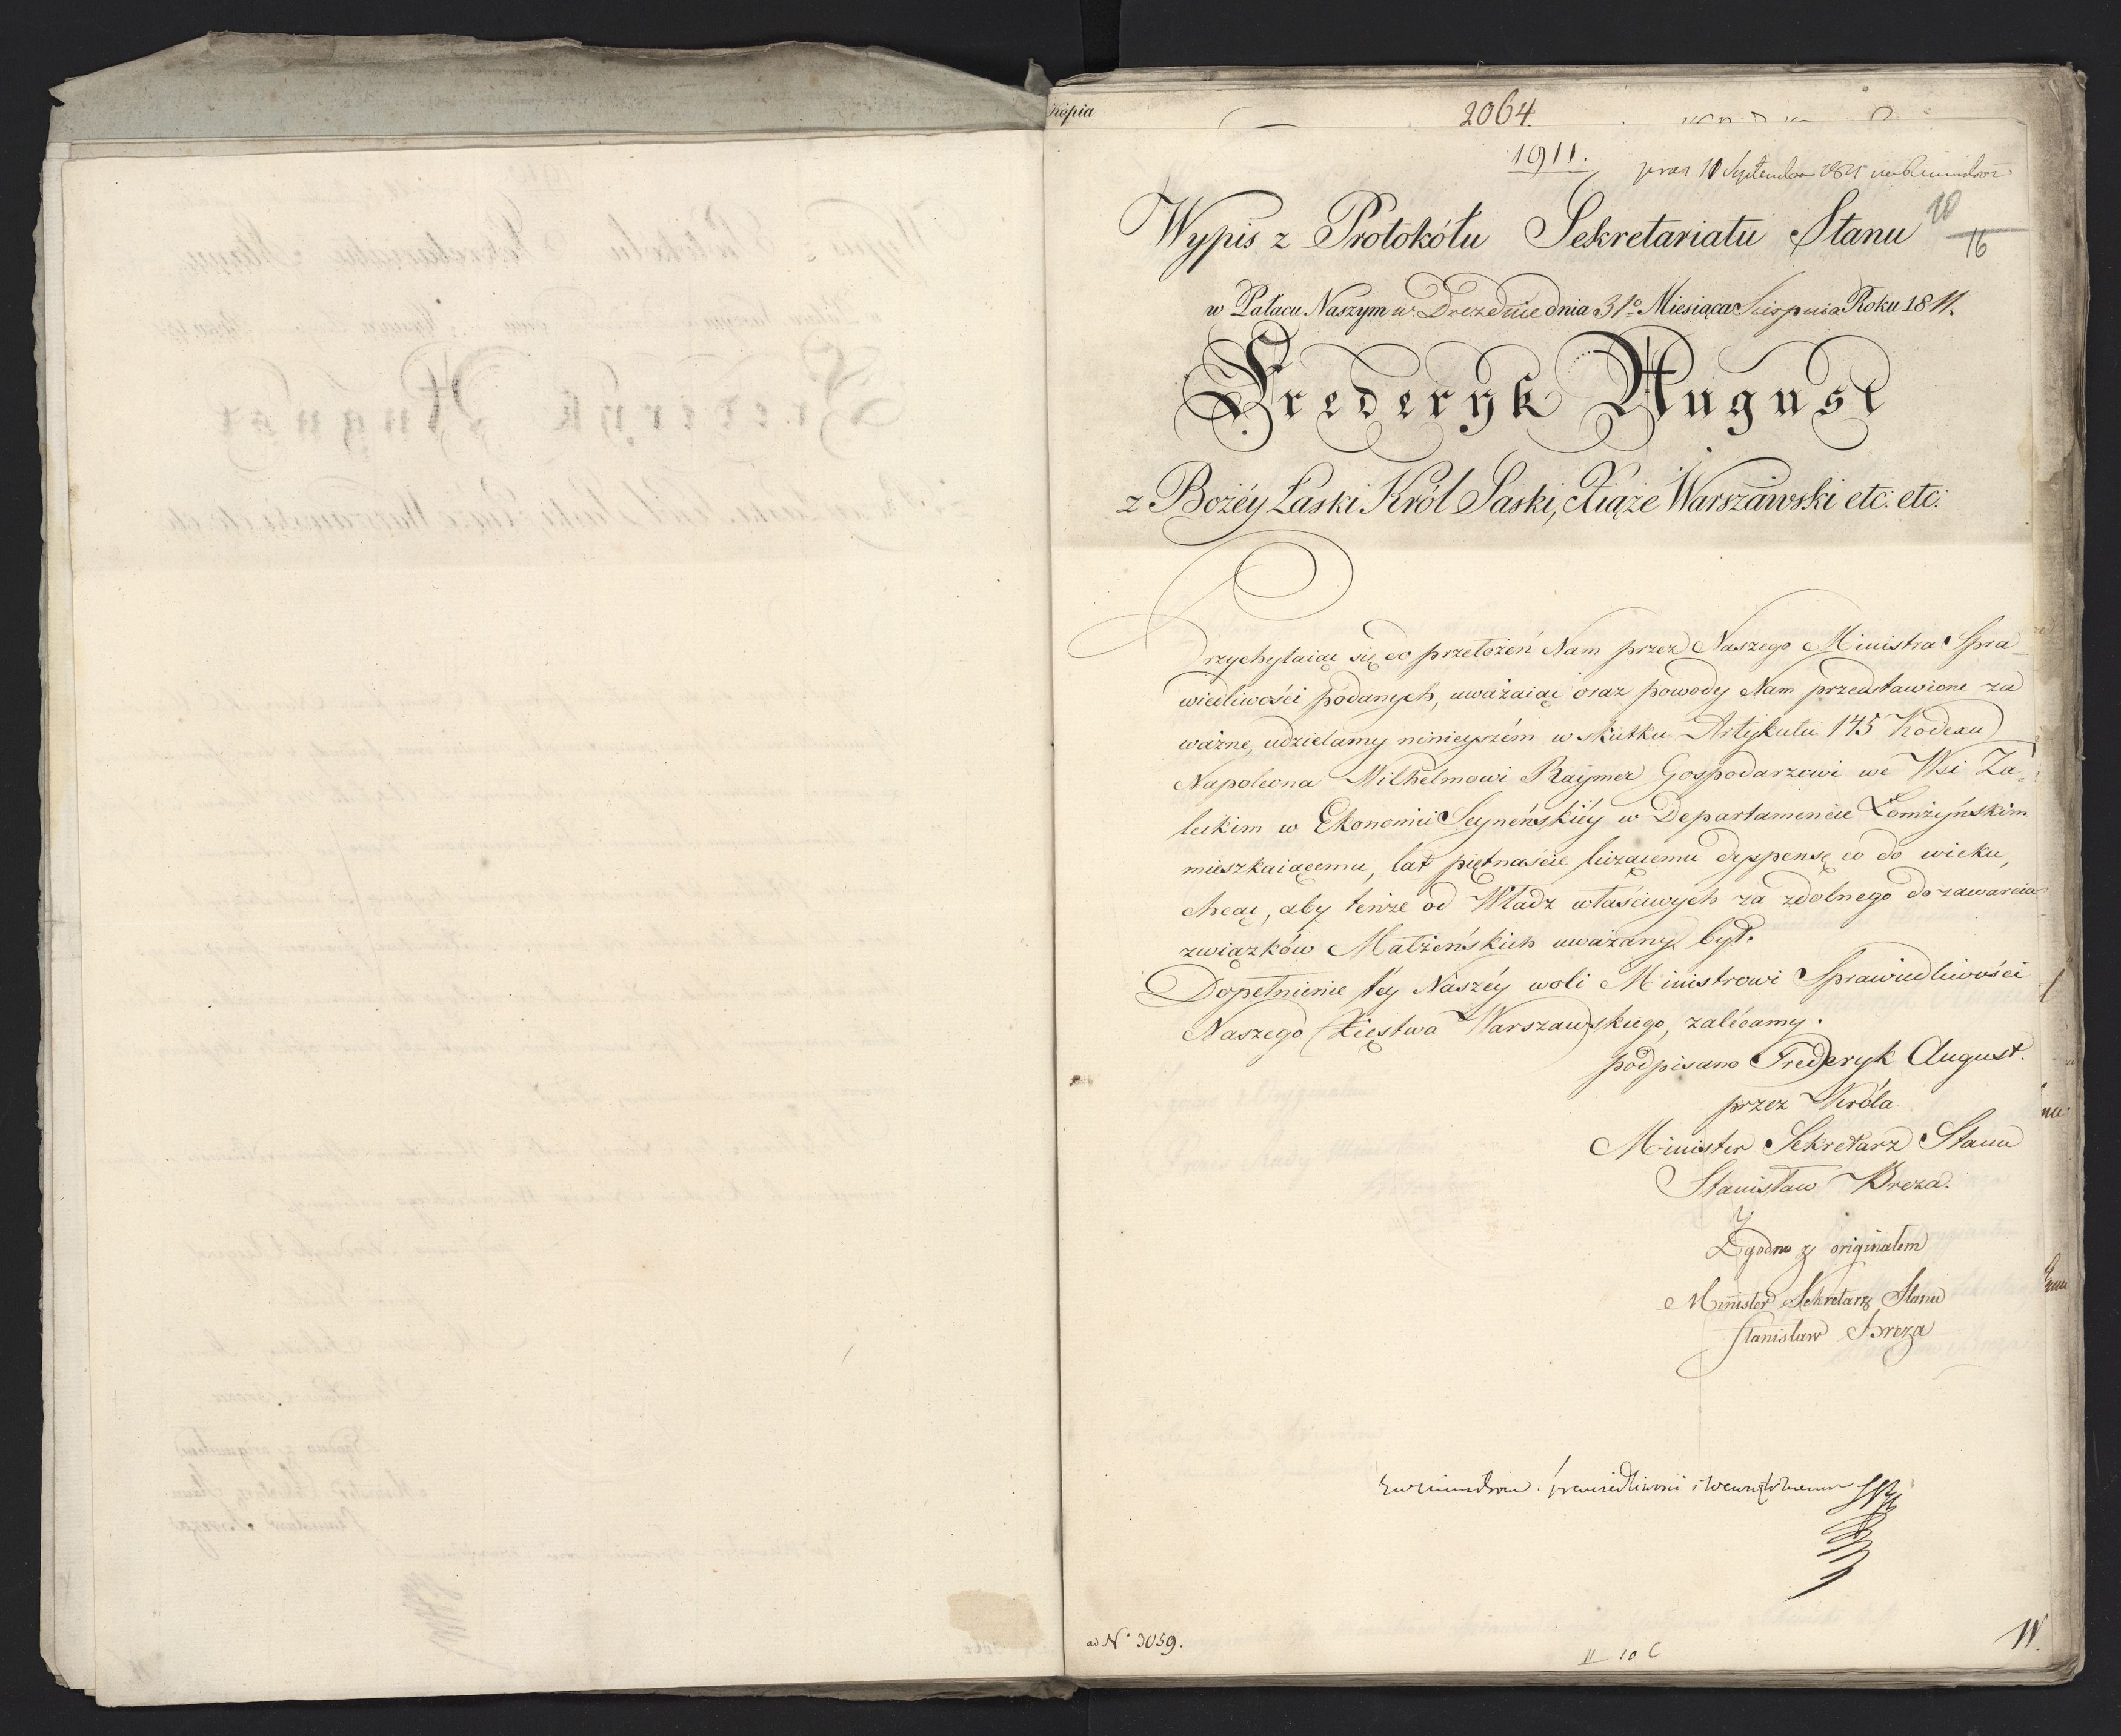 Kopia
2064.
1911.
10
16
Wypis z Protokółu Sekretariatu Stanu
w Pałacu Naszym w Dreznie dnia 31o Miesiąca Sierpnia Roku 1811.
Frederyk August
z Bożéy Łaski Król Saski, Xiąże Warszawski etc: etc:
Przychylaiąc się do przełożeń Nam przez Naszego Ministra Spra-
wiedliwości podanych, uważaiąc oraz powody Nam przedstawione za
ważne, udzielamy ninieyszém w skutku Artykułu 145 Kodexu
Napoleona Wilhelmowi Raymer Gospodarzowi we Wsi Za-
leskim w Ekonomii Seyneńskiéy w Departamencie Łomżyńskim
mieszkaiącemu, lat piętnaście liczącemu dyspensę co do wieku,
chcąc, aby tenże od Władz właściwych za zdolnego do zawarcia
związków Małżeńskich uważany był.
Dopełnienie téy Naszéy woli Ministrowi Sprawiedliwości
Naszego Xięstwa Warszawskiego, zalécamy.
podpisano Frederyk August.
przez Króla
Minister Sekretarz Stanu
Stanisław Breza.
Zgodno z originałem
Minister Sekretarz Stanu
Stanisław Breza
ad No 3059.
II 10 C